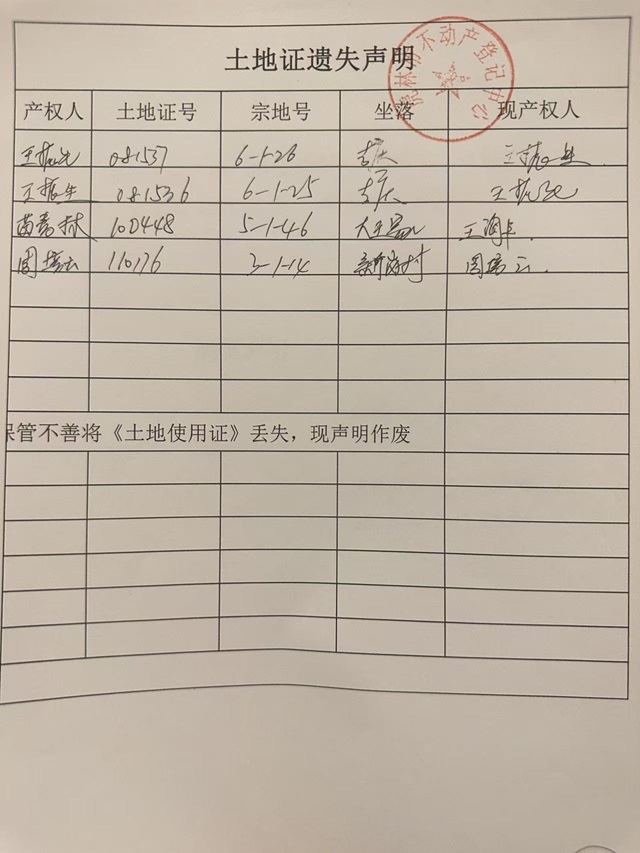 土地证遗失声明
虎林市不动产登记中心
产权人 土地证号 宗地号 坐落 现产权人
王振光 081537 6-1-26 吉庆 王振生
王振生 081536 6-1-25 吉庆 王振光
苗秀林 100448 5-1-46 王海
周培云 110176 3-1-14 新政村 周培云
保管不善将《土地使用证》丢失，现声明作废